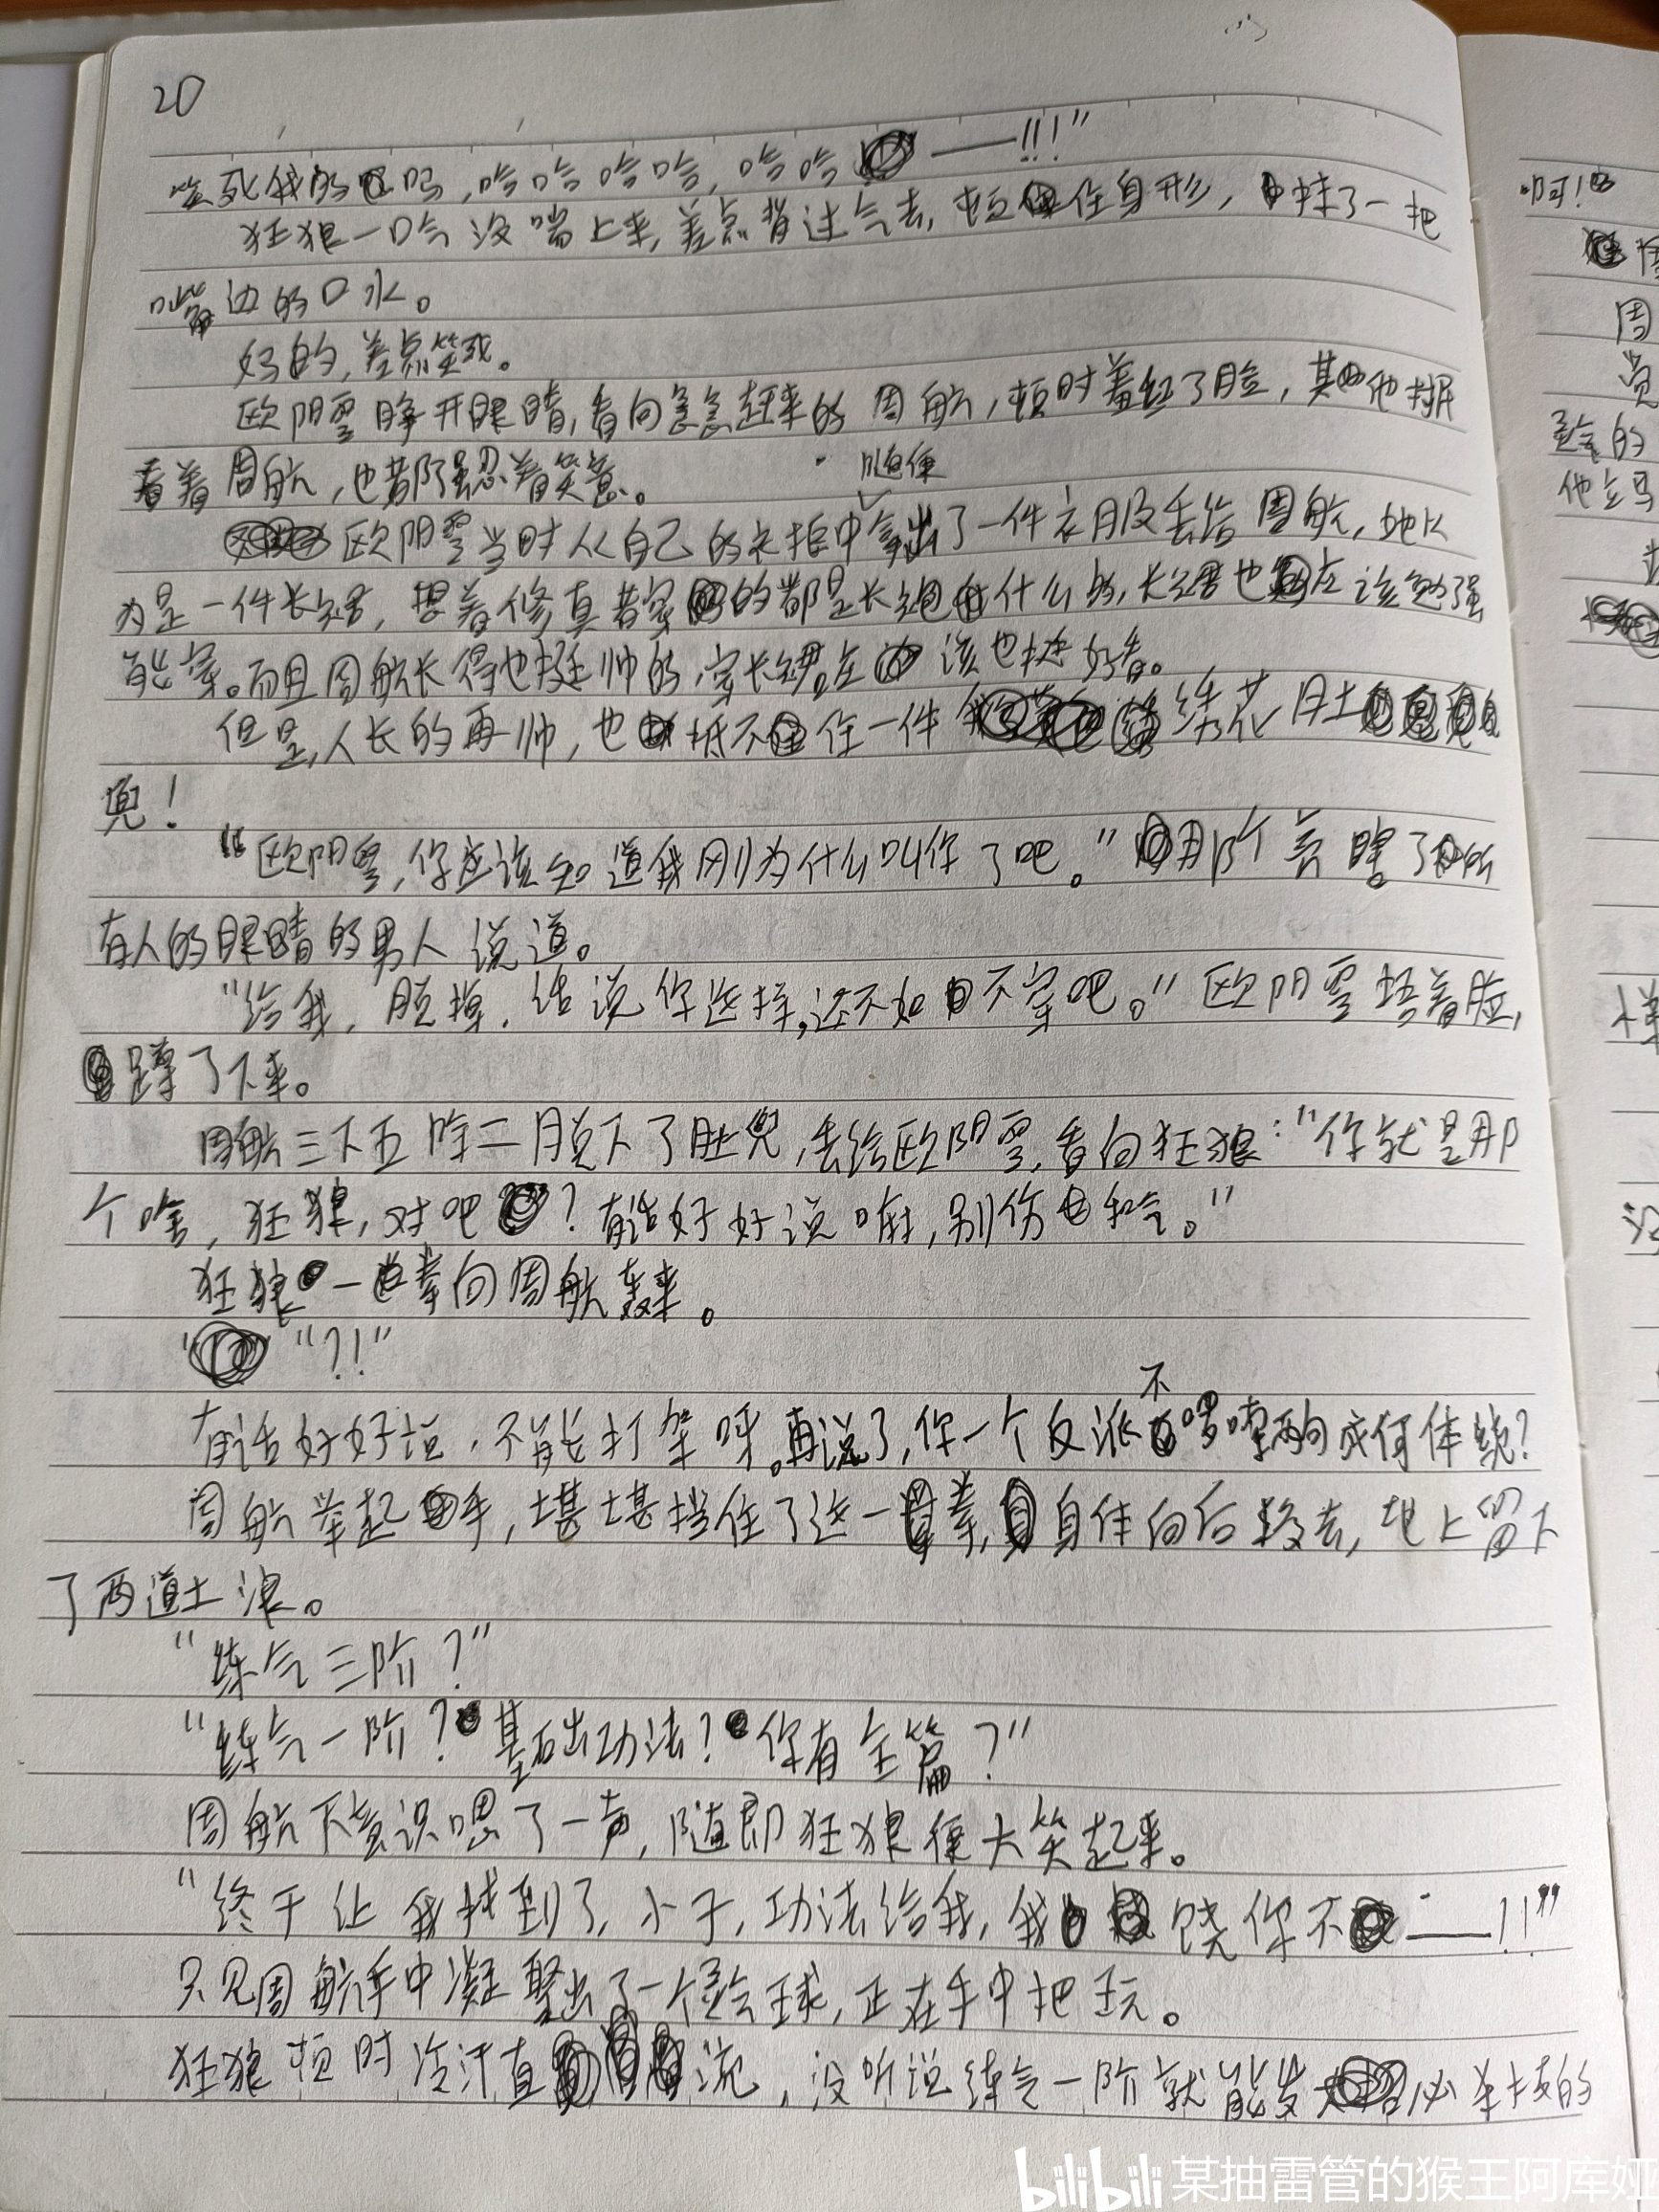 20
笑死我的了吗,哈哈哈哈,哈哈——!!!"
狂狼一口气没喘上来,差点背过气去,顿住身形,抹了一把
嘴边的口水。
好的,差点笑死。
欧阴雪睁开眼睛,看向急急赶来的周航,顿时羞红了脸,其他
看着周航,也都强忍着笑意。
随便
欧阴雪当时从自己的衣柜中拿出了一件衣服丢给周航,她以
为是一件长裙,想着修真者穿的都是长袍什么的,长裙也应该勉强
能穿。而且周航长得也挺帅的,穿长裙应该也挺好看。
但是,人长的再帅,也抵不住一件绣花肚
兜!
"欧阴雪,你应该知道我刚为什么叫你了吧。"那个亮瞎了所
有人的眼睛的男人说道。
"给我,脱掉,话说你这样,还不如不穿吧。"欧阴雪捂着脸,
蹲了下来。
周航三下五除二脱下了肚兜,丢给欧阴雪,看向狂狼:"你就是那
个啥,狂狼,对吧?有话好好说嘛,别伤和气。"
狂狼一拳向周航轰来。
"?!"
不
有话好好说,不能打架呀。再说了,你一个反派啰嗦两句成何体统?
周航举起手,堪堪挡住了这一拳,身体向后移去,地上留下
了两道土浪。
"练气三阶?"
"练气一阶?基础功法?你有全篇?"
周航下意识嗯了一声,随即狂狼便大笑起来。
"终于让我找到了,小子,功法给我,我饶你不——!!"
只见周航手中凝聚出了一个灵气球,正在手中把玩。
狂狼顿时冷汗直流,没听说练气一阶就能发必杀技的
啊!
周
灵气的
他立马
样
bilibili 某抽雷管的猴王阿库娅